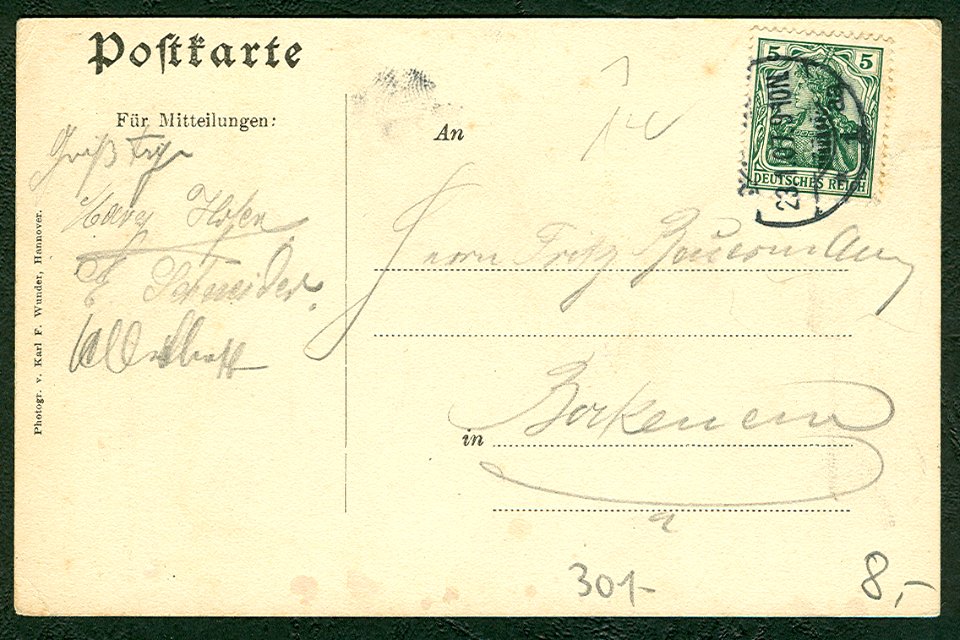 Postkarte
Für Mitteilungen:
Gruß
Hofen
E. Schneider.
Photogr. v. Karl F. Wunder, Hannover.
An
Herrn Fritz
in Bockenem
a
301-
8,-
5 5
DEUTSCHES REICH
23. 07. 9-10N.